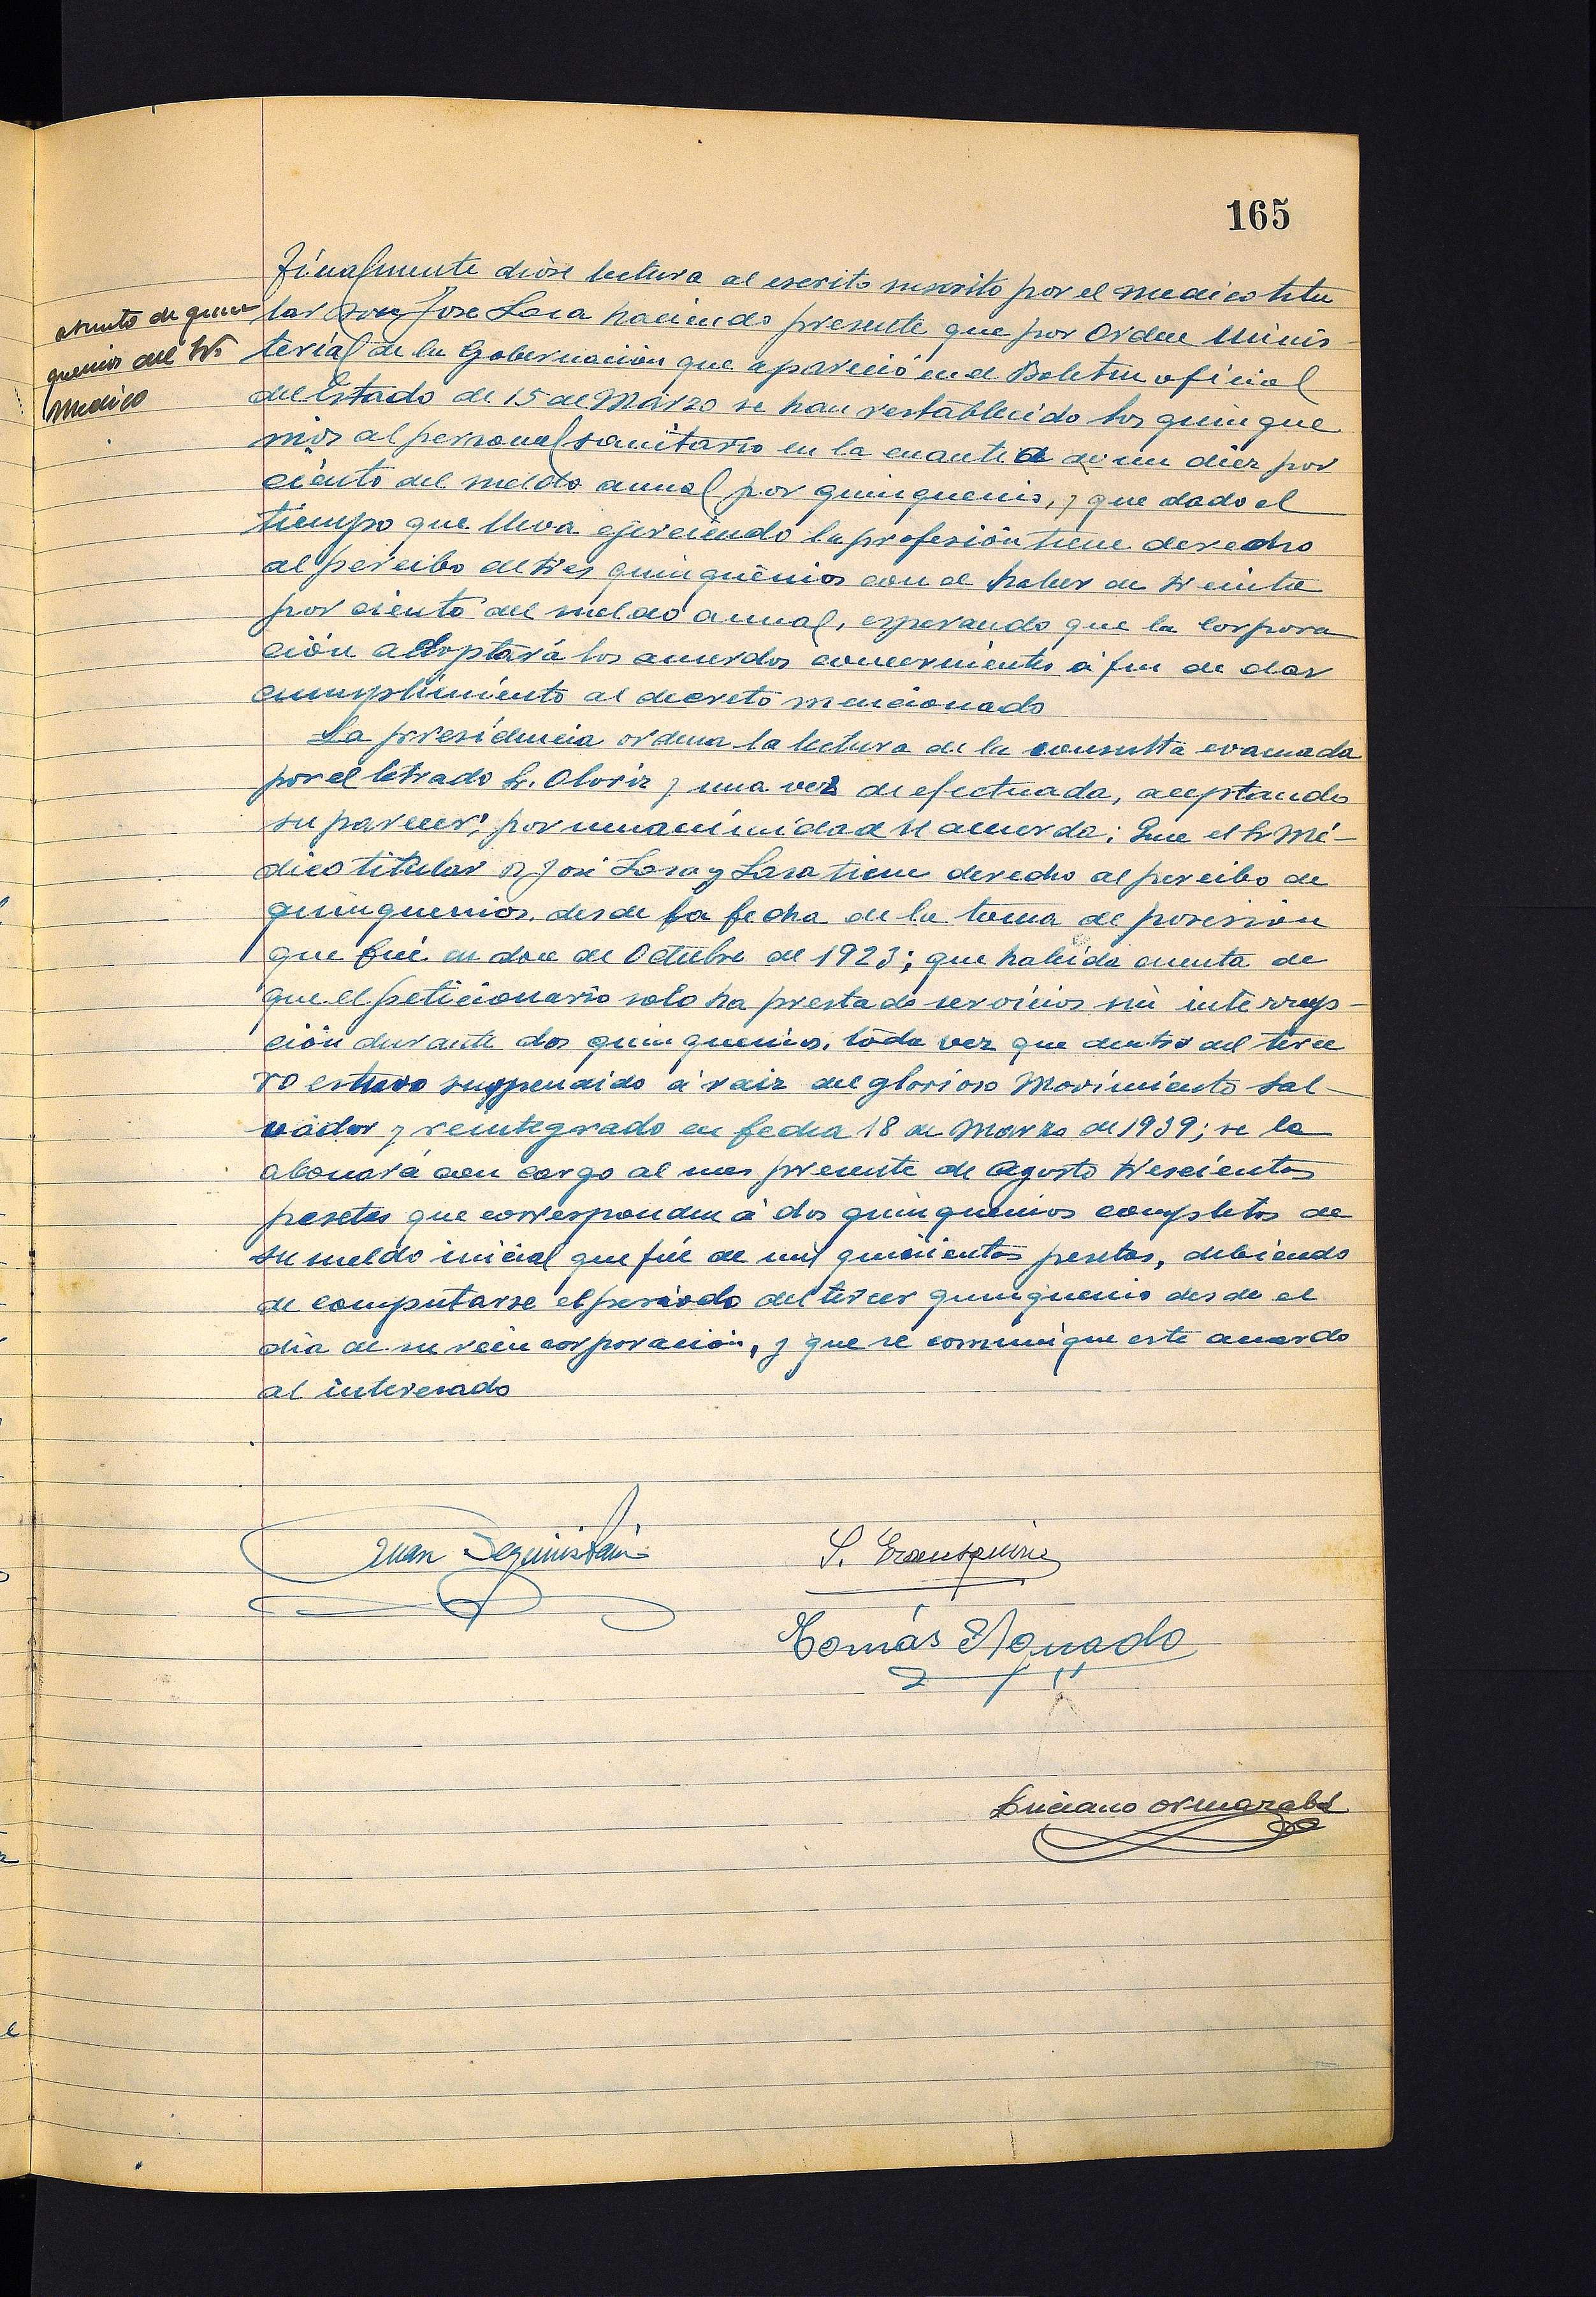 165
asunto de quin
quenios del Sr.
Medico
Finalmente dióse lectura al escrito suscrito por el medico titu
lar Don Jose Lasa haciendo presente que por Orden Minis-
terial de la Gobernación que apareció en el Boletin oficial
del Estado de 15 de Marzo se han restablecido los quinque
nios al personal sanitario en la cuantia de un diez por
ciento del sueldo anual por quinquenio, y que dado el
tiempo que lleva ejerciendo la profesión tiene derecho
al percibo de tres quinquenios con el haber de treinta
por ciento del sueldo anual, esperando que la Corpora
ción adoptará los acuerdos concernientes á fin de dar
cumplimiento al decreto mencionado
La presidencia ordena la lectura de la consulta evacuada
por el letrado Sr. Oloriz y una vez de efectuada, aceptando
su parecer, por unanimidad se acuerda: Que el Sr Mé-
dico titular D. José Lasa y Lasa tiene derecho al percibo de
quinquenios desde la fecha de la toma de posesión
que fué en doce de Octubre de 1923; que habida cuenta de
que el peticionario solo ha prestado servicios sin interrup-
ción durante dos quinquenios, toda vez que dentro del terce
ro estuvo suspendido á raiz del glorioso Movimiento Sal-
vador y reintegrado en fecha 18 de Marzo de 1939; se le
abonará con cargo al mes presente de Agosto trescientas
pesetas que corresponden á dos quinquenios completos de
su sueldo inicial que fué de mil quinientas pesetas, debiendo
de computarse el periodo del tercer quinquenio desde el
dia de su reincorporación, y que se comunique este acuerdo
al interesado
Juan Seguristain
S.
Tomás Aguado
Luciano Ormazabal